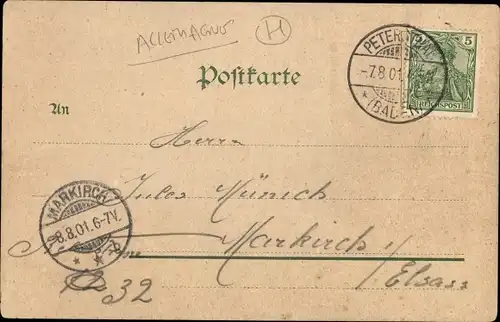 ALLEMAGNE H
Postkarte
PETERSTHAL
-7.8.01.
* (BADEN) *
5
REICHSPOST
An
Herrn
Jules Münich
MARKIRCH
8.8.01.6-7V.
* *
Markirch i/
Elsass
32